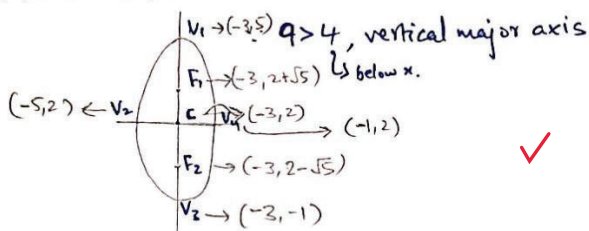 V₁→(-3,5) 9>4, vertical major axis
↳ below x.
F₁→(-3, 2+√5)
(-5,2) ← V₂
C →(-3,2)
V₄ → (-1,2)
F₂ →(-3, 2-√5)
V₃→ (-3,-1)